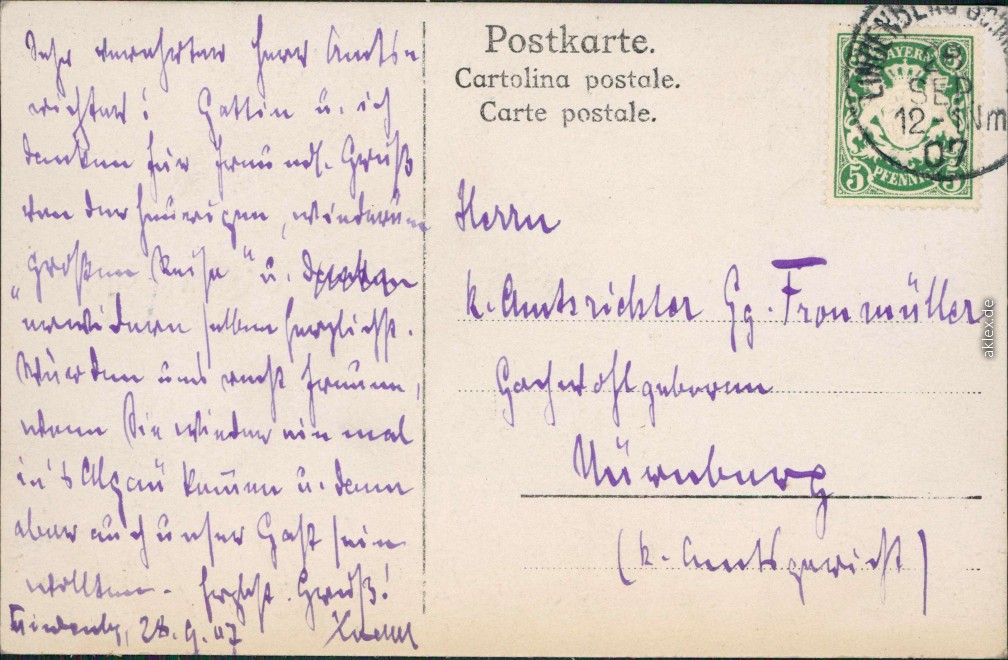 Sehr verehrter Herr Amts=
richter! Gattin u. ich
danken für freundl. Gruß
von der heurigen,
"großen Reise" u.
erwidern selben herzlichst.
Würden uns recht freuen,
wenn Sie wieder ein mal
in's Algäu kämen u. dann
aber auch unser Gast sein
wollten. Herzlichst. Gruß!
28.9.07
Postkarte.
Cartolina postale.
Carte postale.
BAYERN
5 PFENNIG 5
SEP
12-1Nm
07
Herrn
k. Amtsrichter Gg. Fronmüller
Hochwohlgeboren
Nürnberg
(k. Amtsgericht)
aklex.de